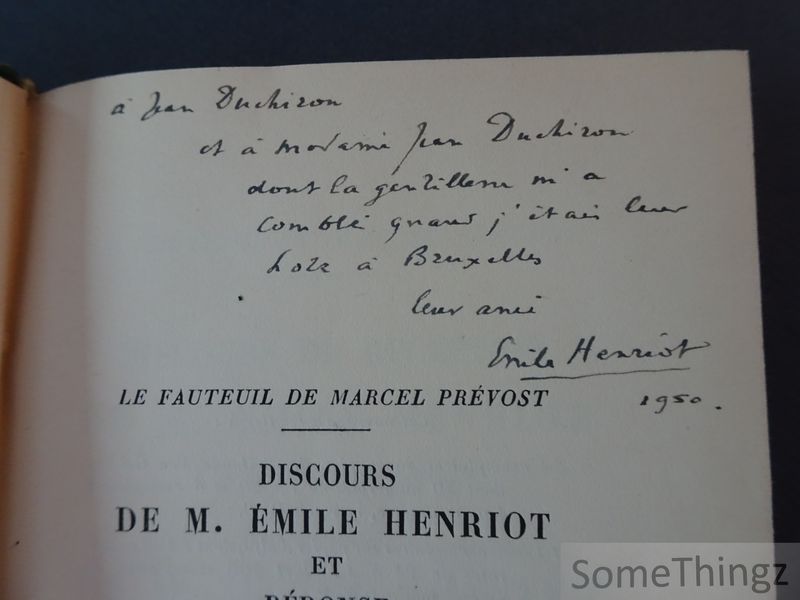 à Jean Duchiron
et à madame Jean Duchiron
dont la gentillesse m'a
comblé quand j'étais leur
hôte à Bruxelles
leur ami
Emile Henriot
1950.
LE FAUTEUIL DE MARCEL PRÉVOST
DISCOURS
DE M. ÉMILE HENRIOT
ET
RÉPONSE
SomeThingz